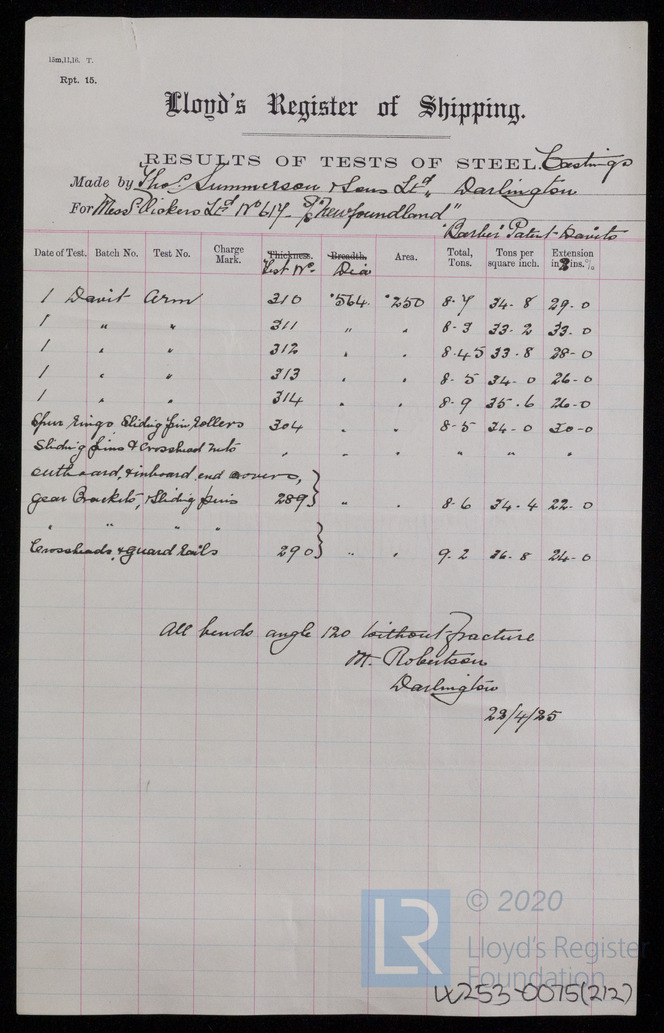 15m,11,16. T.
Rpt. 15.
Lloyd's Register of Shipping.
RESULTS OF TESTS OF STEEL. Castings
Made by Thos. Summerson & Sons Ltd., Darlington
For Messrs Vickers Ltd No 617 S/S "Newfoundland"
"Barber" Patent Davits
Date of Test. Batch No. Test No. Charge Mark. Thickness. Test No. Breadth. Dia Area. Total, Tons. Tons per square inch. Extension in 2 ins. %
1 Davit Arm 310 .564 .250 8.7 34.8 29.0
1 " " 311 " " 8.3 33.2 33.0
1 " " 312 " " 8.45 33.8 28.0
1 " " 313 " " 8.5 34.0 26.0
1 " " 314 " " 8.9 35.6 26.0
Spur rings Sliding pin rollers 304 " " 8.5 34.0 30.0
Sliding pins & Crosshead nuts " " " " " "
outboard, & inboard end covers,
gear Brackets, Sliding pins 289 " " 8.6 34.4 22.0
" " " "
Crossheads, & guard rails 290 " " 9.2 36.8 24.0
All bends angle 120 without fracture
M. Robertson
Darlington
23/4/25
© 2020
LR
Lloyd's Register
Foundation
W253-0075(2/2)